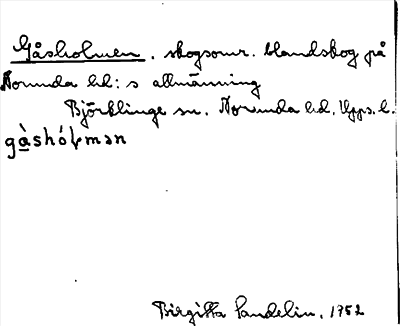 Gåsholmen. skogsomr. blandskog på
Norunda hd:s allmänning
Björklinge sn. Norunda hd. Upps. l.
gàshól̥mən
Birgitta Sandelin, 1952